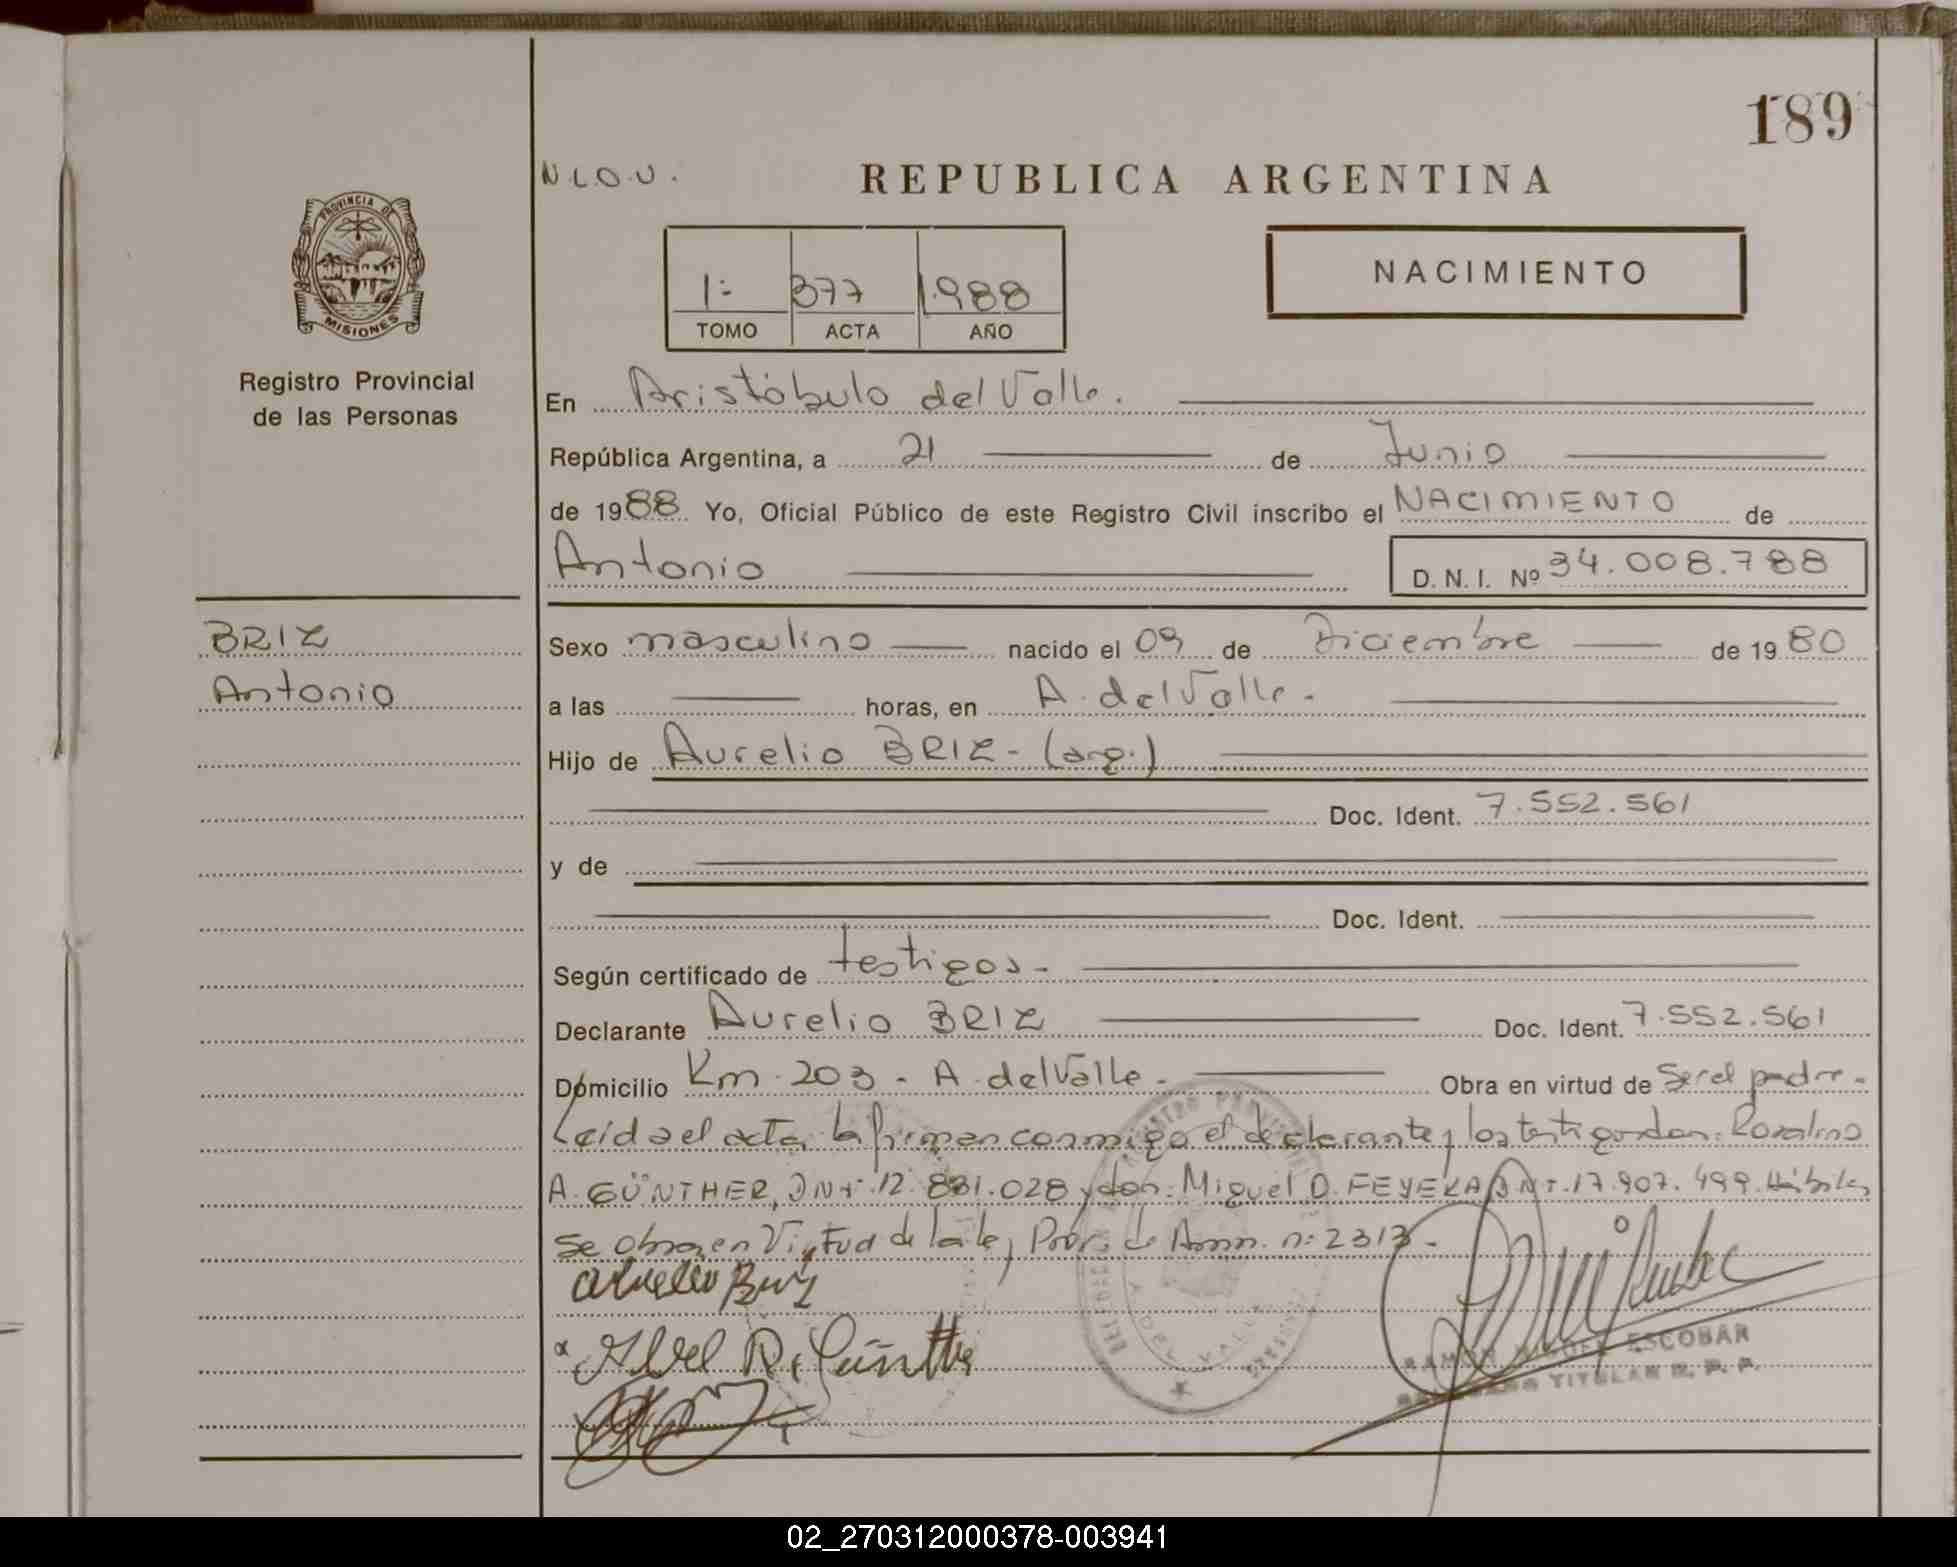 189
N.L.O.U.
REPUBLICA ARGENTINA
PROVINCIA DE
MISIONES
Registro Provincial
de las Personas
1:
377
1.988
TOMO
ACTA
AÑO
NACIMIENTO
En Aristóbulo del Valle.
República Argentina, a 21 de Junio
de 1988 Yo, Oficial Público de este Registro Civil inscribo el NACIMIENTO de
Antonio
D. N. I. Nº 34.008.788
BRIZ
Antonio
Sexo masculino nacido el 09 de Diciembre de 1980
a las horas, en A. del Valle.
Hijo de Aurelio BRIZ - (arg.)
Doc. Ident. 7.552.561
y de
Doc. Ident.
Según certificado de testigos.
Declarante Aurelio BRIZ Doc. Ident. 7.552.561
Domicilio Km. 203 - A. del Valle. Obra en virtud de Ser el padre.
Leida el acta, la firman conmigo el declarante y los testigos don: Rosalino
A. GÜNTHER, DNI. 12.881.028 y don: Miguel D. FEYEKA DNI. 17.907.499. Hábiles
Se obra en Virtud de la ley Prov. de Amn. n: 2313.
Aurelio Briz
Abel R. Günther
RAMON MIGUEL ESCOBAR
TITULAR R. P. P.
02_270312000378-003941